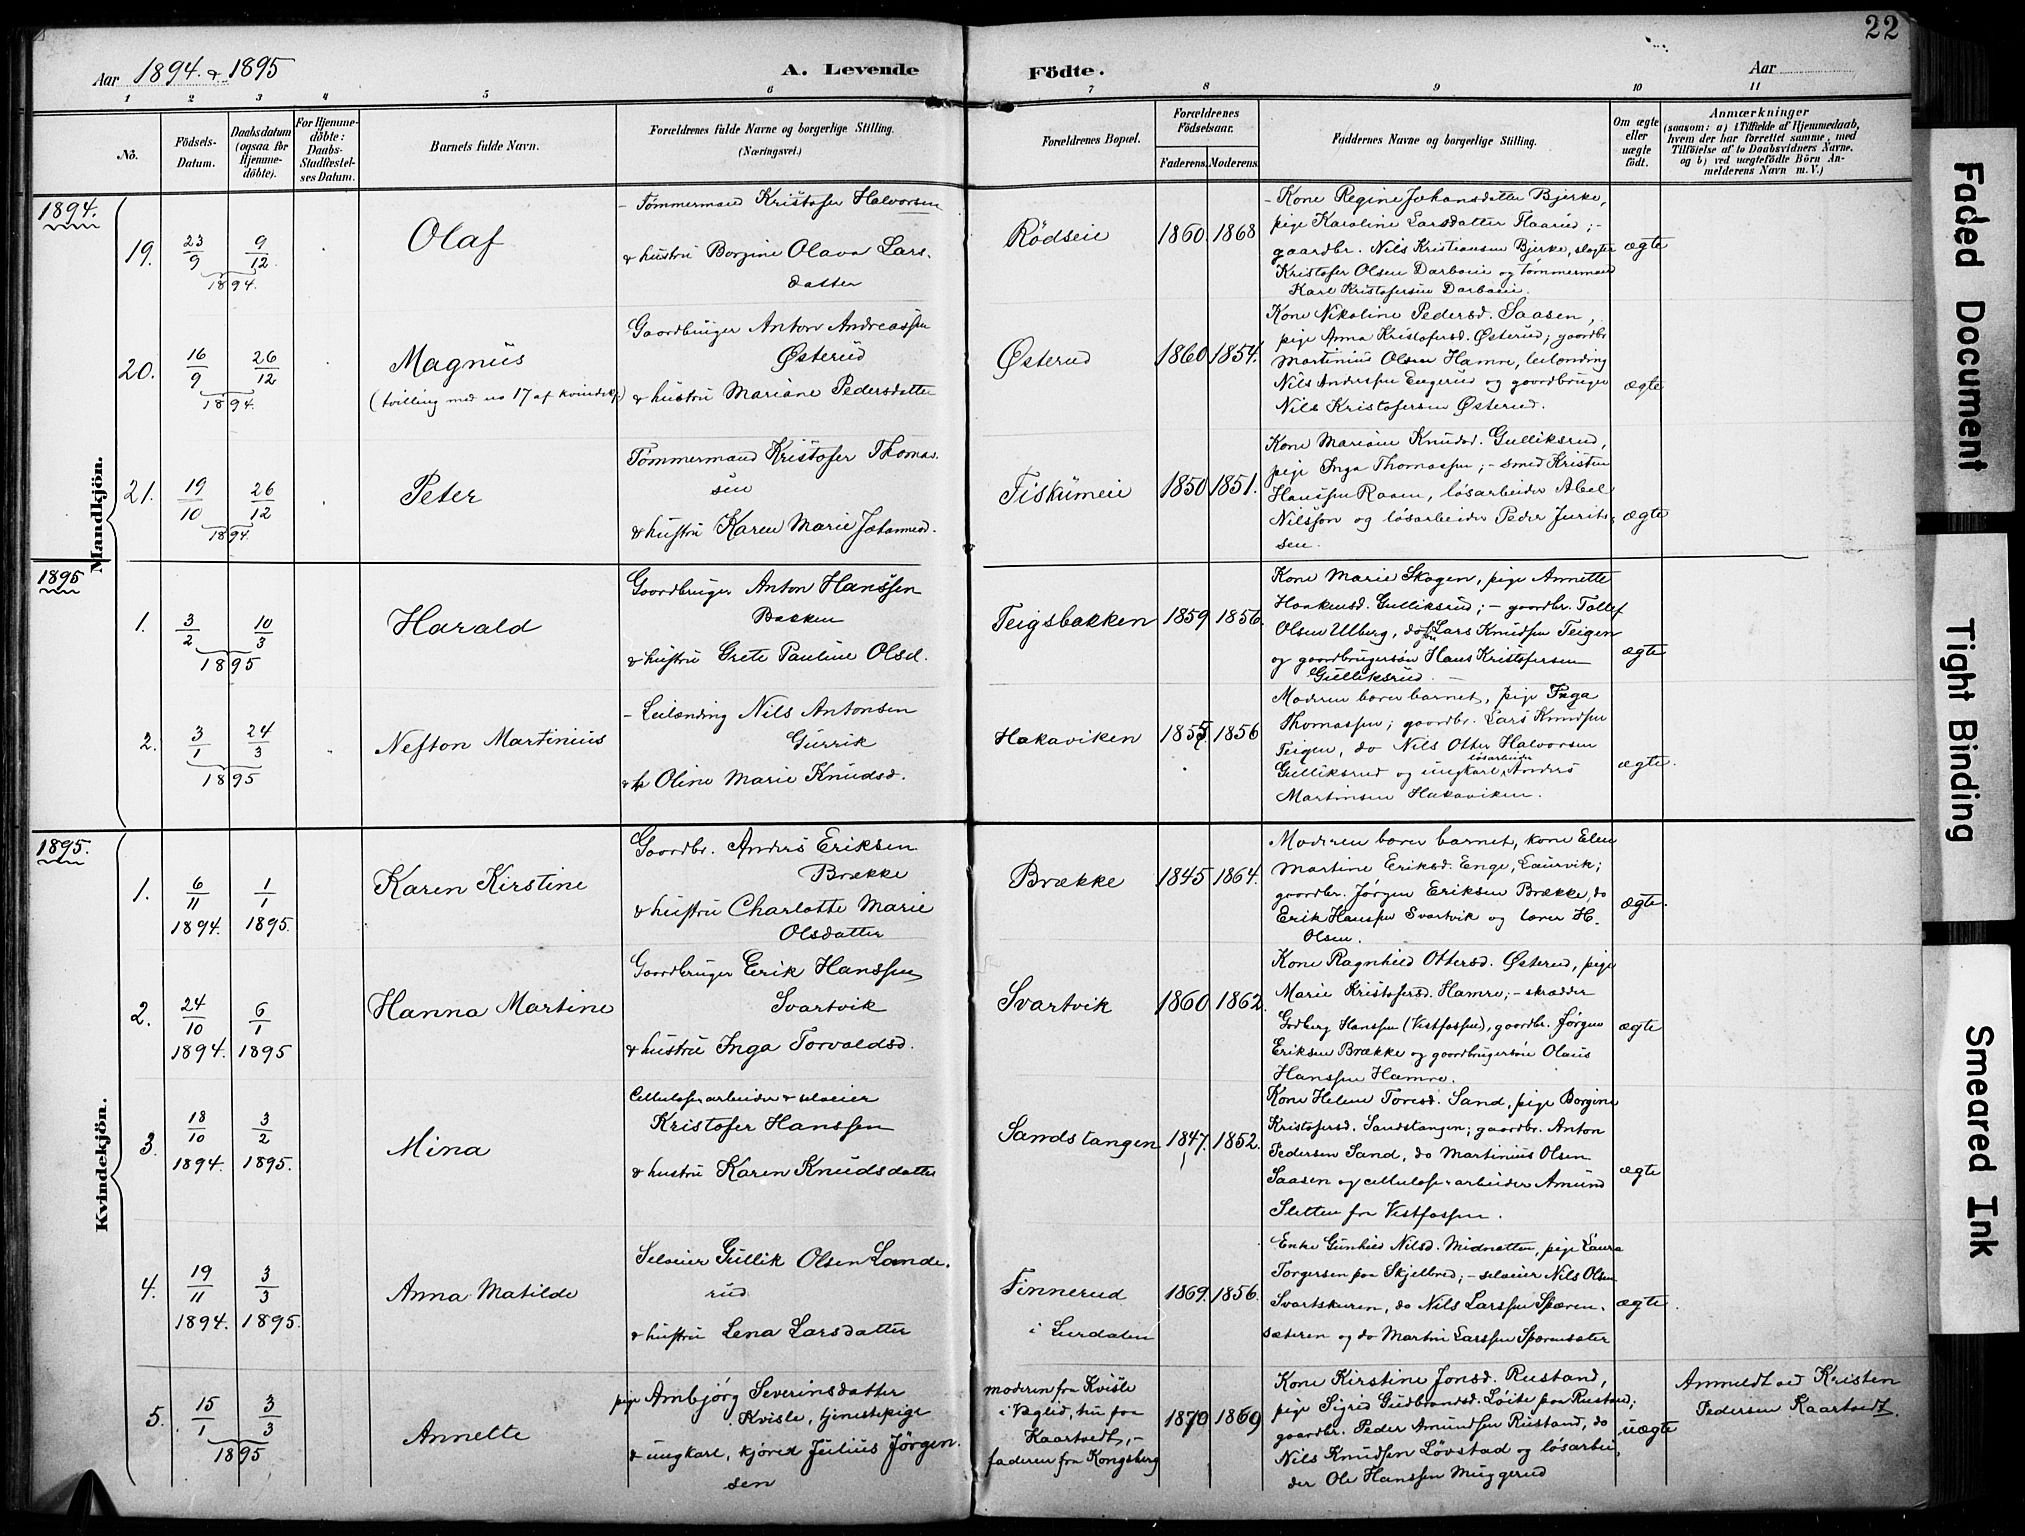 22
Aar 1894 & 1895
A. Levende Födte.
Aar
1 2 3 4 5 6 7 8 9 10 11
No.
Födsels-Datum.
Daabsdatum (ogsaa for Hjemmedöbte).
For Hjemmedöbte: Daabs-Stadfestelses Datum.
Barnets fulde Navn.
Forældrenes fulde Navne og borgerlige Stilling.
(Næringsvei.)
Forældrenes Bopæl.
Forældrenes Födselsaar.
Faderens. Moderens.
Faddernes Navne og borgerlige Stilling.
Om ægte eller uægte födt.
Anmærkninger
(saasom: a) i Tilfælde af Hjemmedaab, hvem der har forrettet samme, med Tilföielse af to Daabsvidners Navne, og b) ved uægtefödte Börn Anmelderens Navn m. V.)
Mandkjön.
1894.
19.
23/9 9/12
1894.
Olaf
- Tømmermand Kristofer Halvorsen
& hustru Borgine Olava Lars-
datter
Rödseie
1860. 1868
- Kone Regine Johansdatter Bjerke,
pige Karoline Larsdatter Flaarud; -
gaardbr. Nils Kristiansen Bjerke, slagter
Kristofer Olsen Darboeie og tømmermand
Karl Kristofersen Darboeie.
ægte
20.
16/9 26/12
1894.
Magnus
(tvilling med no 17 af kvindekj.)
Gaardbruger Anton Andreassen
Østerud
& hustru Mariane Pedersdatter
Østerud
1860 1854.
Kone Nikoline Pedersd. Saasen,
pige Anna Kristofersd. Østerud; gaardbr
Martinius Olsen Hamre, leilænding
Nils Anderssen Engerud og gaardbruger
Nils Kristofersen Østerud.
ægte
21.
19/10 26/12
1894.
Peter
Tømmermand Kristofer Thomas-
sen
& hustru Karen Marie Johannesd.
Fiskumeie
1850 1851.
Kone Mariane Knudsd. Gulliksrud,
pige Inga Thomassen; - smed Kristen
Hanssen Raaen, løsarbeider Abel
Nilsson og løsarbeider Peder Jurits-
sen.
ægte
1895
1.
3/2 10/3
1895
Harald
Gaardbruger Anton Hanssen
Bakken
& hustru Grete Pauline Olsd.
Teigsbakken
1859 1856.
Kone Marie Skogen, pige Annette
Haakensd. Gulliksrud; - gaardbr. Tollef
Olsen Ulberg, do Lars Knudsen Teigen
og gaardbrugersøn Hans Kristofersen
Gulliksrud. -
ægte
2.
3/1 24/3
1895
Nefton Martinius
- Leilænding Nils Antonsen
Gurrik
& h. Oline Marie Knudsd.
Hakaviken
1855 1856
Moderen bærer barnet, pige Inga
Thomassen; gaardbr. Lars Knudsen
Teigen, do Nils Otter Halvorsen
Gulliksrud og ungkarl, løsarbeider Anders
Martinsen Hakaviken.
ægte.
Kvindekjön.
1895.
1.
6/11 1/1
1894. 1895.
Karen Kirstine
Gaardbr. Anders Eriksen
Brække
& hustru Charlotte Marie
Olsdatter
Brække
1845 1864.
Moderen bærer barnet, kone Elen
Martine Eriksd. Enge, Laurvik;
gaardbr. Jørgen Eriksen Brække, do
Erik Hanssen Svartvik og lærer H.
Olsen.
ægte.
2.
24/10 6/1
1894. 1895
Hanna Martine
Gaardbruger Erik Hanssen
Svartvik
& hustru Inga Torvaldsd.
Svartvik
1860 1862
Kone Ragnhild Ottersd. Østerud, pige
Marie Kristofersd. Hamre; - skrædder
Godberg Hanssen (Vestfossen), gaardbr. Jørgen
Eriksen Brække og gaardbrugersøn Olaus
Hanssen Hamre.
ægte
3.
18/10 3/2
1894. 1895.
Mina
Cellulosearbeider & selveier
Kristofer Hanssen
& hustru Karen Knudsdatter
Sandstangen
1847. 1852.
Kone Helene Toresd. Sand, pige Borgine
Kristofersd. Sandstangen; gaardbr. Anton
Pedersen Sand, do Martinius Olsen
Saasen og cellulosearbeider Amund
Sletten fra Vestfossen.
ægte
4.
19/11 3/3
1894. 1895.
Anna Matilde
Selveier Gullik Olsen Lande-
rud
& hustru Lena Larsdatter
Finnerud
i Surdalen
1869. 1856.
Enke Gunhild Nilsd. Midnatten, pige Laura
Torgersen paa Skjelbred; - selveier Nils Olsen
Svartskuren, do Nils Larssen Spæren-
sæteren og do Martin Larssen Spærensæter
ægte.
5.
15/1 3/3
1895
Annette
pige Ambjörg Severinsdatter
Kvisle, tjenestepige
& ungkarl, kjörer Julius Jörgen-
sen
moderen fra Kvisle
i Veglid, nu paa
Kaartvedt, -
faderen fra Kongsberg
1870 1869
Kone Kirstine Jonsd. Rustand,
pige Sigrid Gudbrandsd. Löite paa Rustand;
gaardbr. Peder Amundsen Rustand, do
Nils Knudsen Lövstad og løsarbei-
der Ole Hanssen Muggerud
uægte
Anmeldt ved Kristen
Pedersen Kaartvedt.
Faded Document
Tight Binding
Smeared Ink